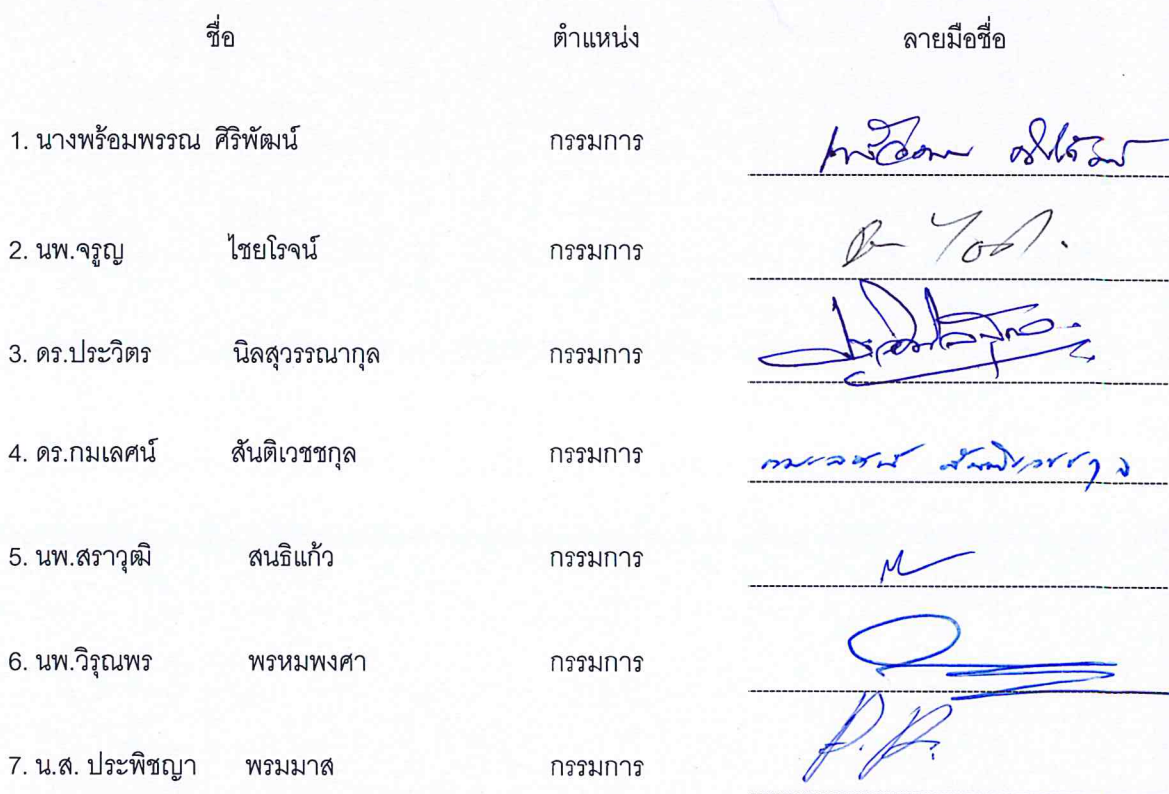 ชื่อ ตำแหน่ง ลายมือชื่อ
1. นางพร้อมพรรณ ศิริพัฒน์ กรรมการ
2. นพ.จรูญ ไชยโรจน์ กรรมการ
3. ดร.ประวิตร นิลสุวรรณากุล กรรมการ
4. ดร.กมเลศน์ สันติเวชชกุล กรรมการ กมเลศน์ สันติเวชชกุล
5. นพ.สราวุฒิ สนธิแก้ว กรรมการ
6. นพ.วิรุณพร พรหมพงศา กรรมการ
7. น.ส. ประพิชญา พรมมาส กรรมการ